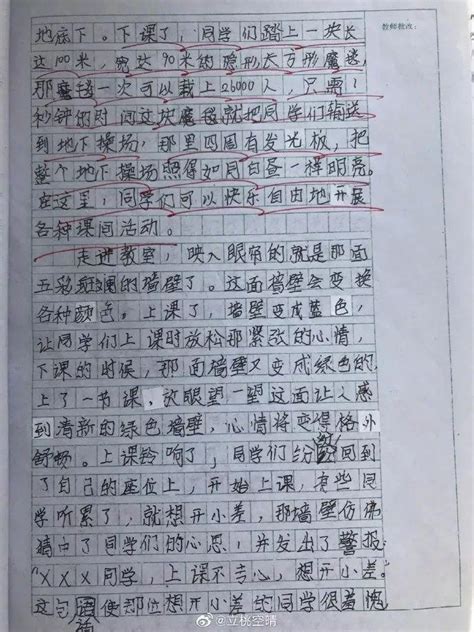 教师批改：
地底下。下课了，同学们踏上一块长
达100米，宽达90米的隐形长方形魔毯，
那魔毯一次可以载上26000人，只需1
秒钟的时间这块魔毯就把同学们输送
到地下操场，那里四周有发光板，把
整个地下操场照得如同白昼一样明亮。
在这里，同学们可以快乐自由地开展
各种课间活动。
走进教室，映入眼帘的就是那面
五彩斑斓的墙壁了。这面墙壁会变换
各种颜色。上课了，墙壁变成蓝色，
让同学们上课时放松那紧张的心情，
下课的时候，那面墙壁又变成绿色的
上了一节课，放眼望一望这面让人感
到清新的绿色墙壁，心情将变得格外
舒畅。上课铃响了，同学们纷纷回到
了自己的座位上，开始上课，有些同
学听累了，就想开小差，那墙壁仿佛
猜中了同学们的心思，并发出了警报：
“×××同学，上课不专心，想开小差。”
这句话使那位想开小差的同学很羞愧
@立桃空晴